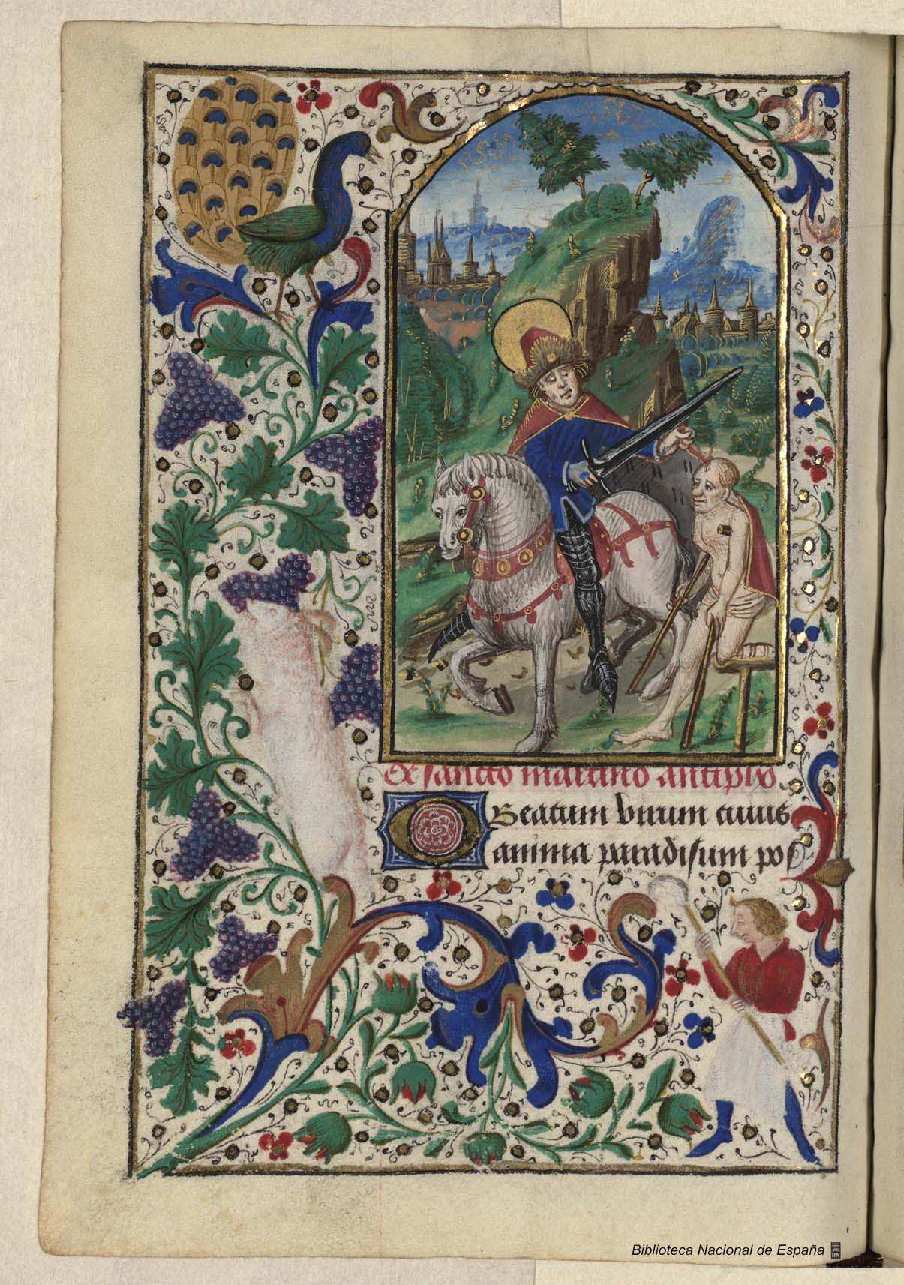 De sancto martino antipho
O Beatum virum cuius
anima paradisum pos
Biblioteca Nacional de España